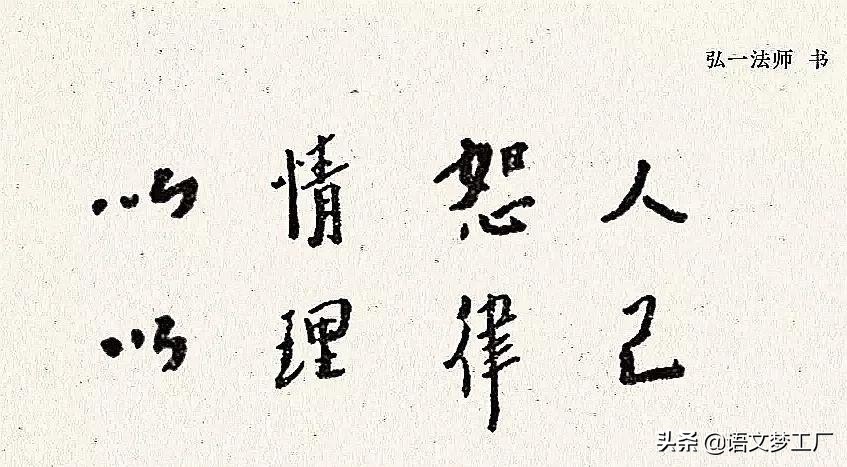 弘一法师 书
以情恕人
以理律己
头条 @语文梦工厂